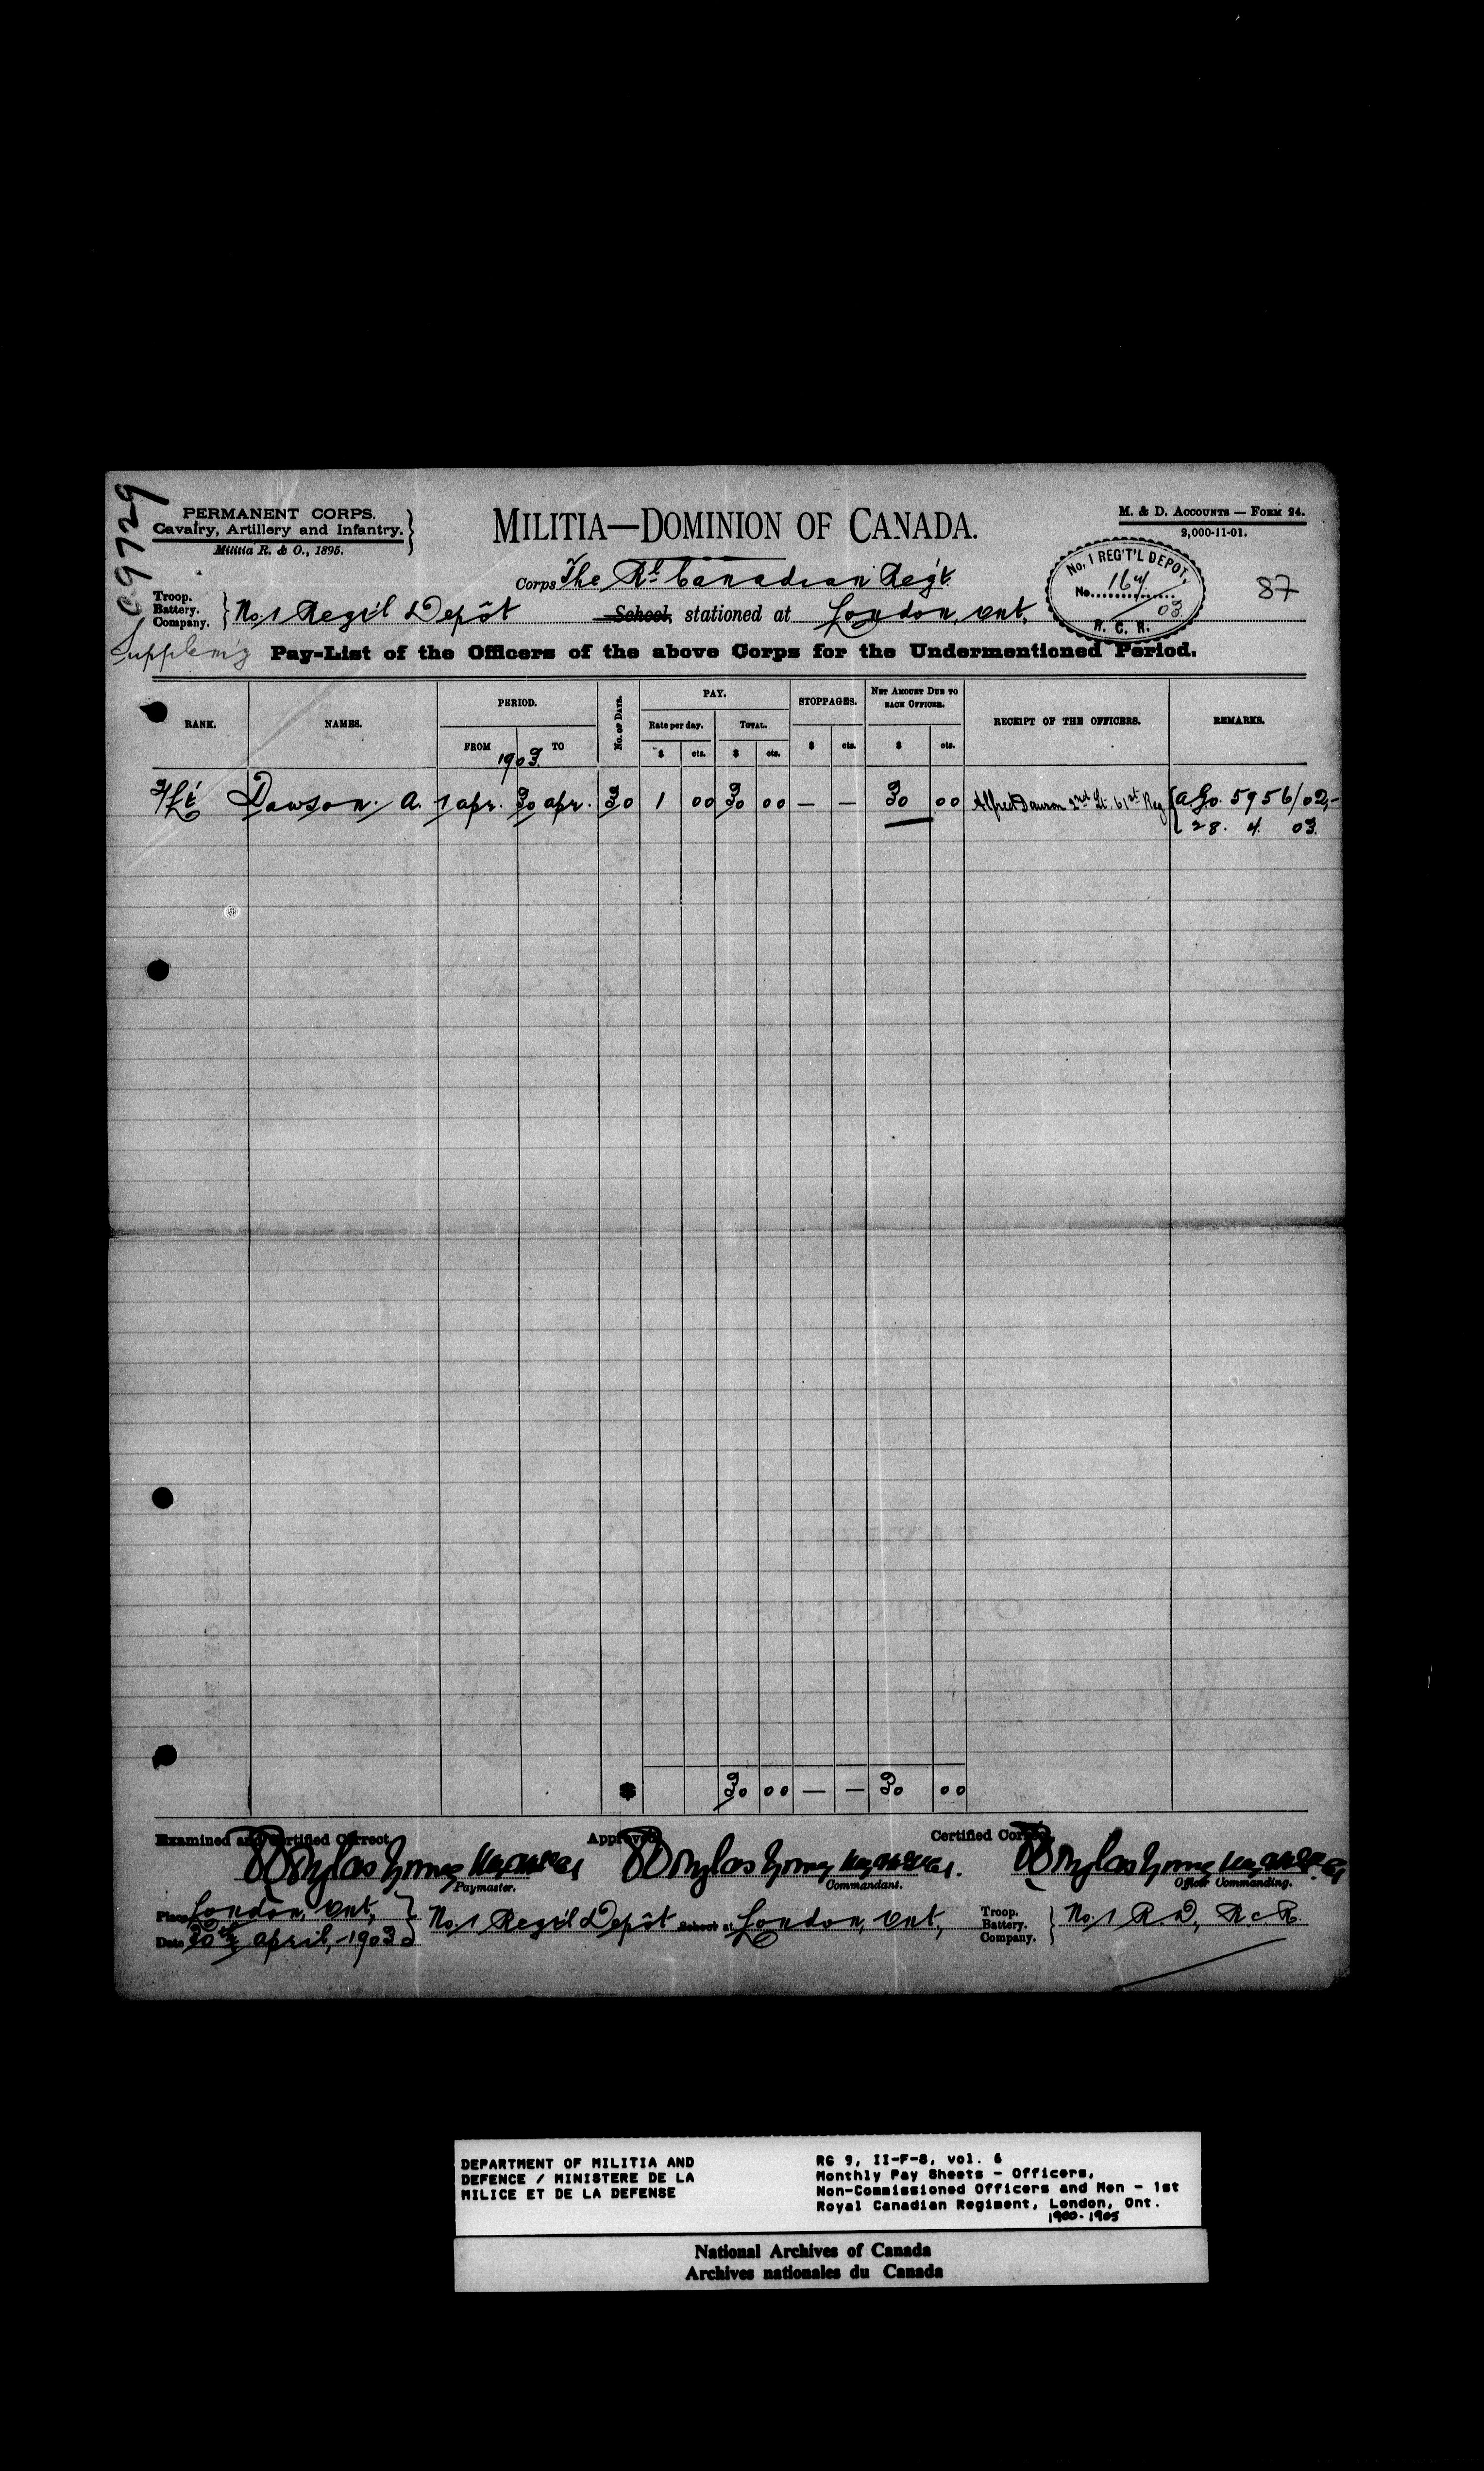 C9729
PERMANENT CORPS.
Cavalry, Artillery and Infantry.
Militia R. & O., 1895.
MILITIA—DOMINION OF CANADA.
M. & D. ACCOUNTS — FORM 24.
2,000-11-01.
Corps The Rl Canadian Reg't.
No. 1 REG'T'L DEPOT,
No. 164/03
R. C. R.
87
Troop. Battery. Company. } No. 1 Regt'l Depôt School, stationed at London, Ont,
Supplem'g Pay-List of the Officers of the above Corps for the Undermentioned Period.
RANK. NAMES. PERIOD. No. of Days. PAY. STOPPAGES. NET AMOUNT DUE TO EACH OFFICER. RECEIPT OF THE OFFICERS. REMARKS.
Rate per day. TOTAL.
FROM 1903 TO $ cts. $ cts. $ cts. $ cts.
2/Lt Dawson. A. 1 apr. 30 apr. 30 1 00 30 00 — — 30 00 Alfred Dawson 2nd Lt. 61st Reg {A.G.O. 5956/02,-
28. 4. 03.
$ 30 00 — — 30 00
Examined and Certified Correct, Approved, Certified Correct,
Paymaster. Commandant. Officer Commanding.
Place London, Ont,
Date 30th April, -1903
No. 1 Regt'l Depôt School at London, Ont,
Troop. Battery. Company. } No. 1 R.D, R.C.R.
DEPARTMENT OF MILITIA AND
DEFENCE / MINISTERE DE LA
MILICE ET DE LA DEFENSE
RG 9, II-F-8, vol. 6
Monthly Pay Sheets - Officers,
Non-Commissioned Officers and Men - 1st
Royal Canadian Regiment, London, Ont.
1900-1905
National Archives of Canada
Archives nationales du Canada